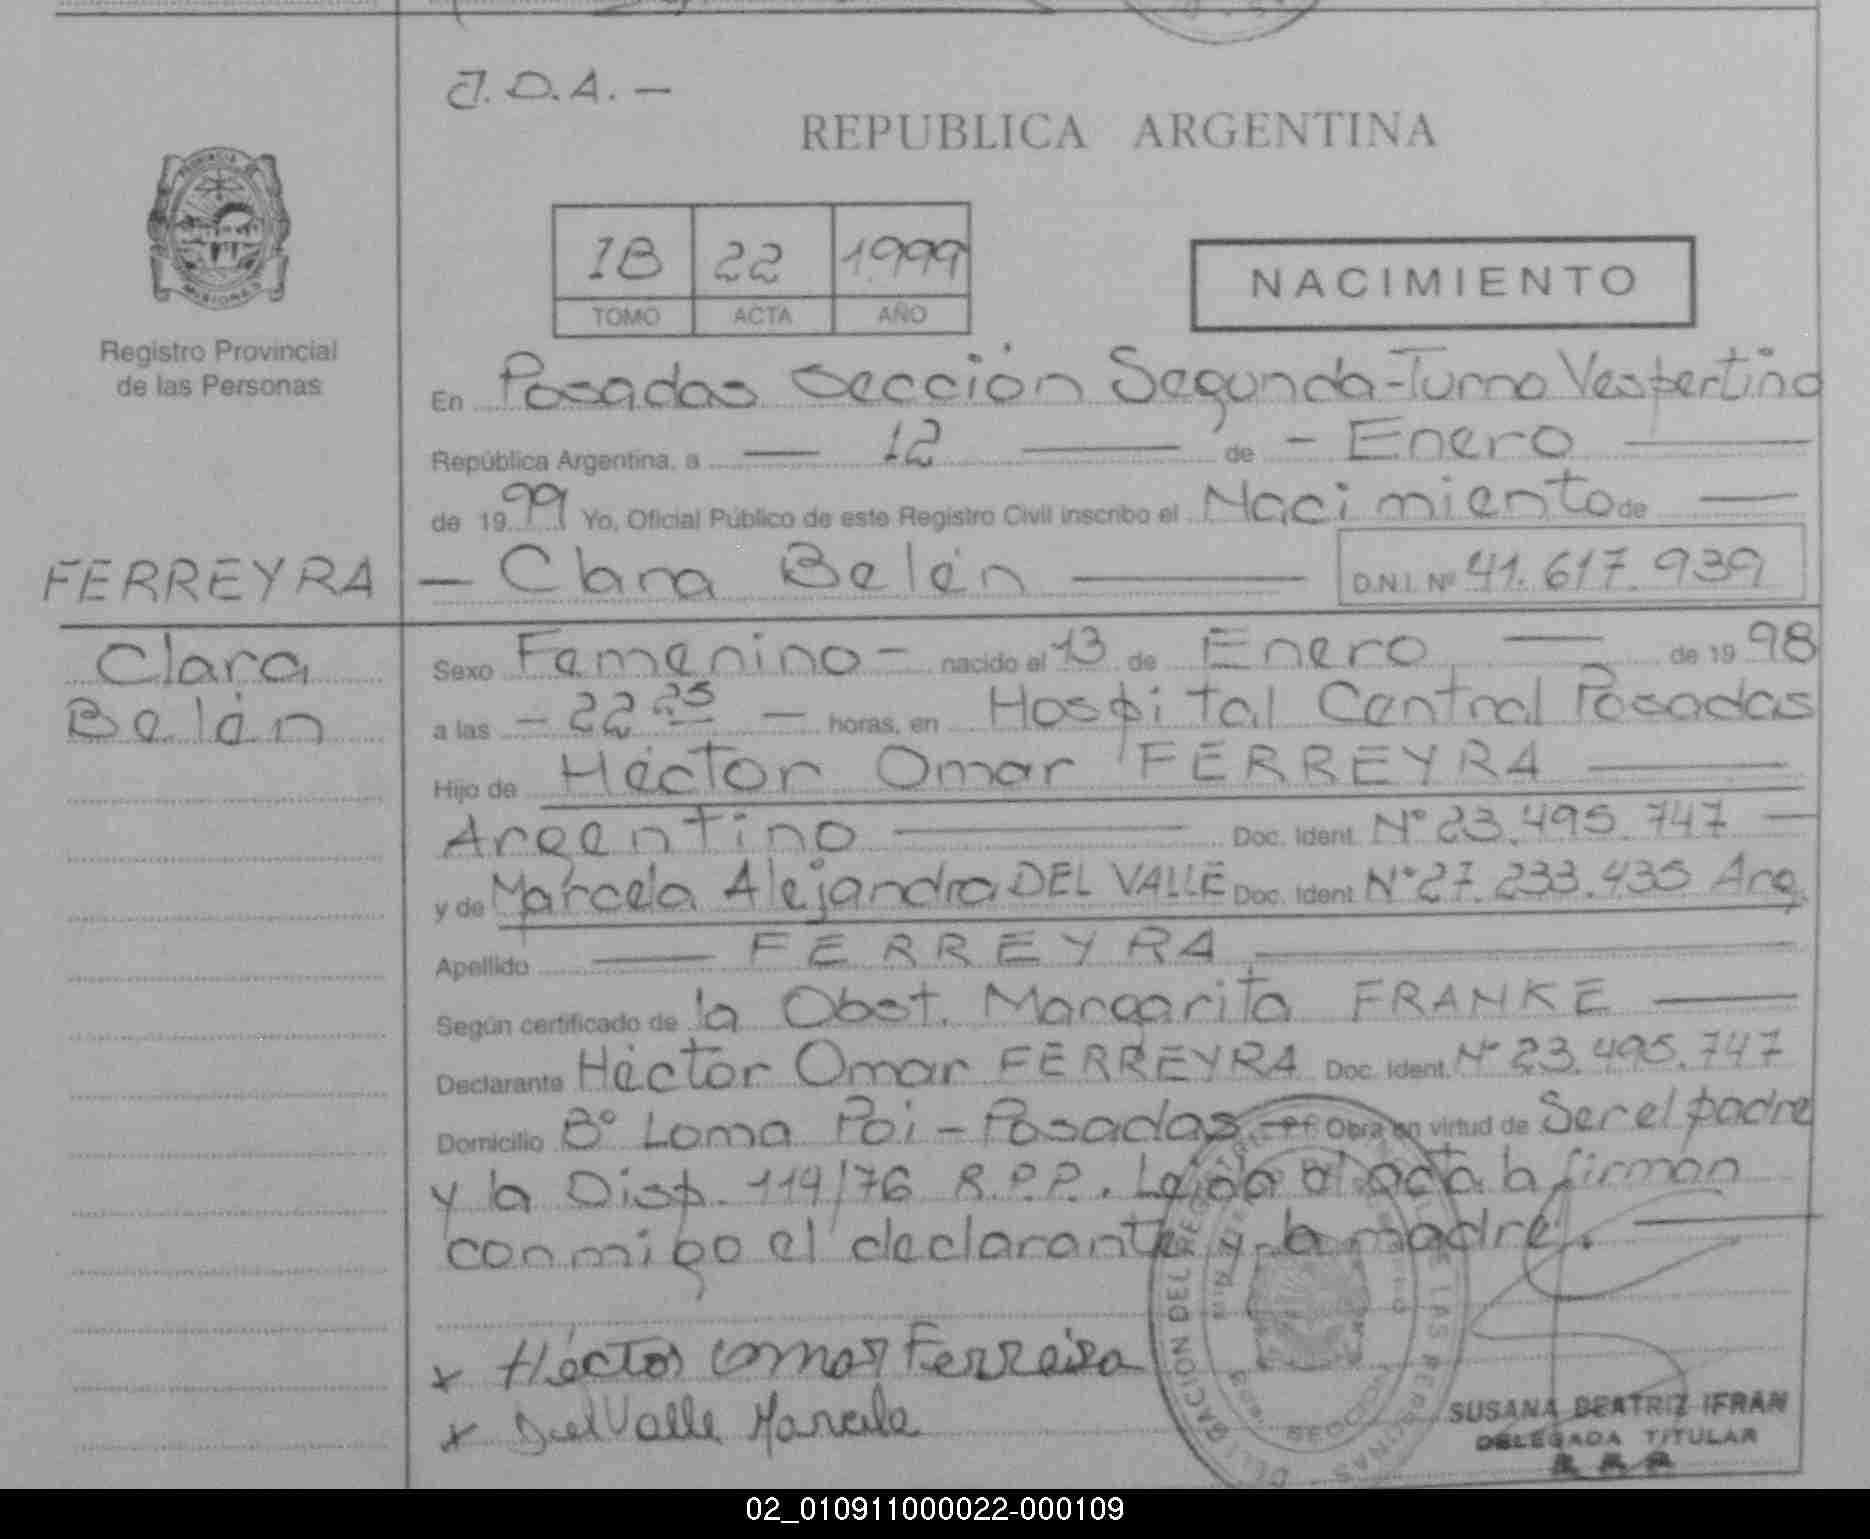 J.D.A. –
REPUBLICA ARGENTINA
PROVINCIA
MISIONES
Registro Provincial
de las Personas
1B 22 1999
TOMO ACTA AÑO
NACIMIENTO
En Posadas Sección Segunda-Turno Vespertino
República Argentina, a — 12 — de - Enero —
de 1999 Yo, Oficial Público de este Registro Civil inscribo el Nacimiento de —
FERREYRA — Clara Belén — D.N.I. Nº 41.617.939
Clara
Belén
Sexo Femenino – nacido el 13 de Enero — de 1998
a las – 22 25 — horas, en Hospital Central Posadas
Hijo de Héctor Omar FERREYRA —
Argentino — Doc. Ident. Nº 23.495.747 —
y de Marcela Alejandra DEL VALLE Doc. Ident. Nº 27.233.435 Arg.
Apellido — FERREYRA —
Según certificado de la Obst. Margarita FRANKE —
Declarante Héctor Omar FERREYRA Doc. Ident. Nº 23.495.747
Domicilio Bº Loma Poi – Posadas – Obra en virtud de Ser el padre
y la Disp. 114/76 R.P.P. Leída el acta la firman
conmigo el declarante y la madre. —
x Héctor Omar Ferreira
x Del Valle Marcela
SUSANA BEATRIZ IFRAN
DELEGADA TITULAR
02_010911000022-000109